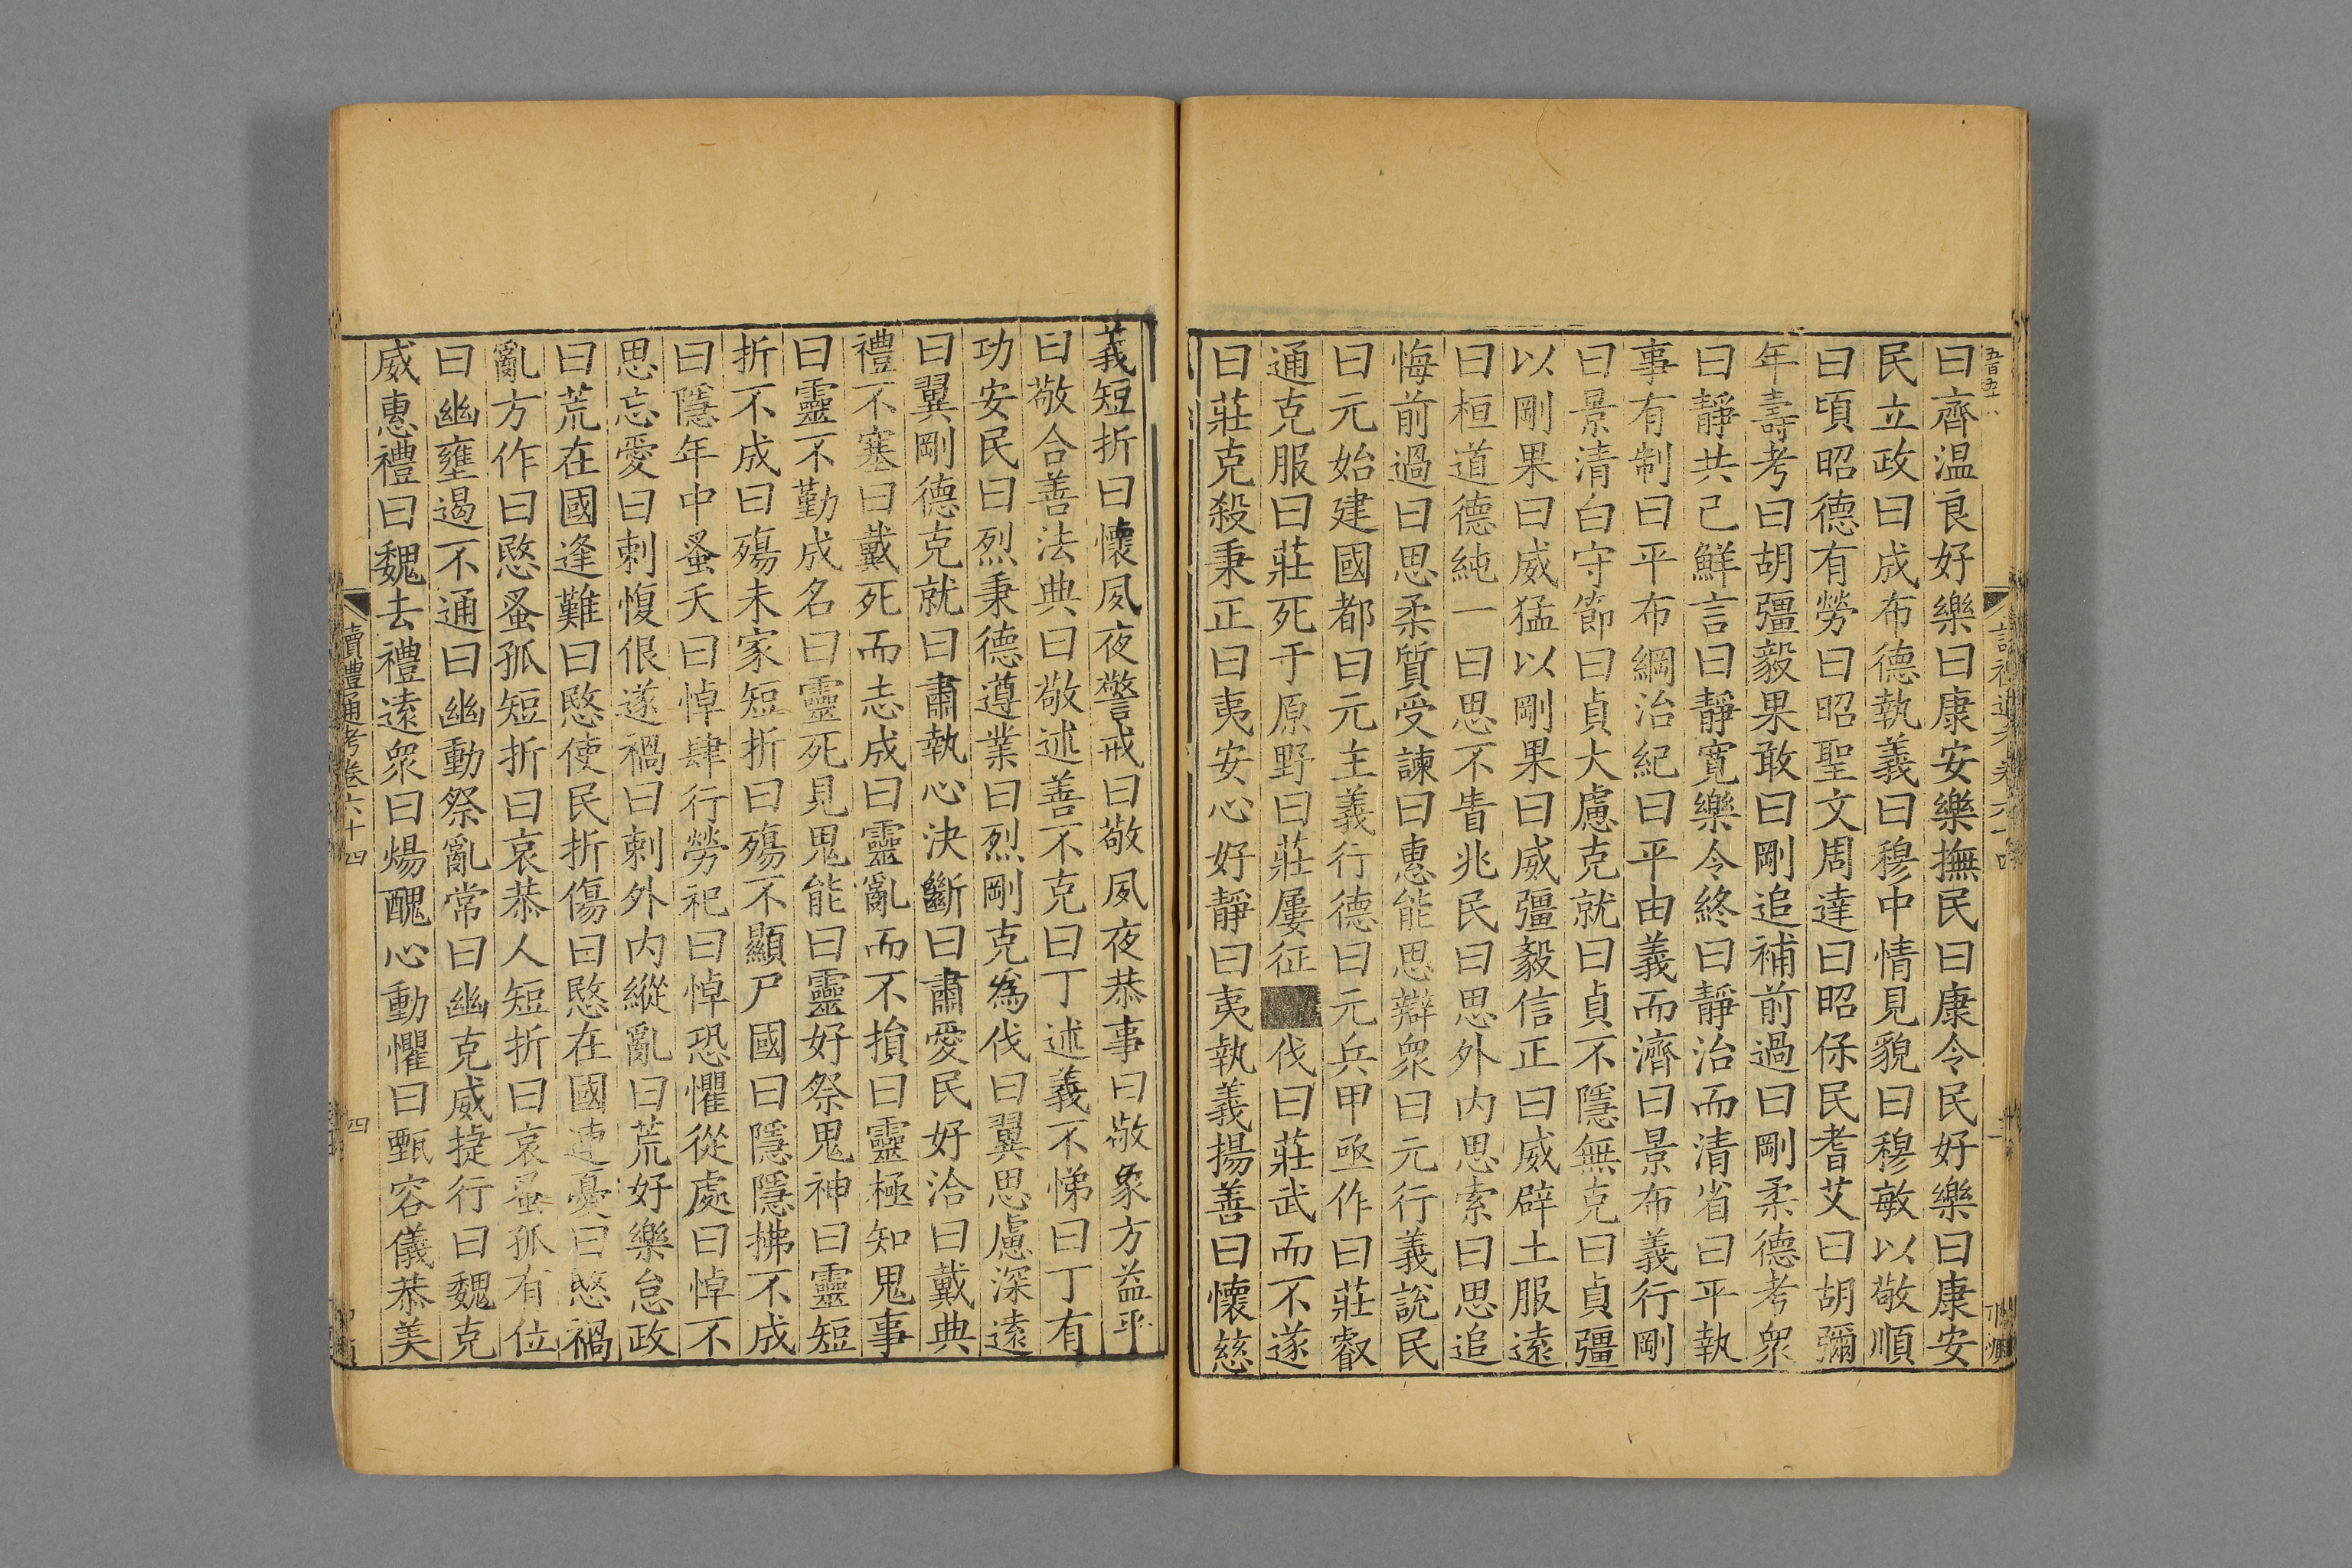 曰齊温良好樂曰康安樂撫民曰康令民好樂曰康安
民立政曰成布德執義曰穆中情見貌曰穆敏以敬順
曰頃昭德有勞曰昭聖文周達曰昭保民耆艾曰胡彌
年壽考曰胡彊毅果敢曰剛追補前過曰剛柔德考衆
曰靜共己鮮言曰靜寬樂令終曰靜治而清省曰平執
事有制曰平布綱治紀曰平由義而濟曰景布義行剛
曰景清白守節曰貞大慮克就曰貞不隱無克曰貞彊
以剛果曰威猛以剛果曰威彊毅信正曰威辟土服遠
曰桓道德純一曰思不眚兆民曰思外内思索曰思追
悔前過曰思柔質受諫曰惠能思辯衆曰元行義說民
曰元始建國都曰元主義行德曰元兵甲亟作曰莊叡
通克服曰莊死于原野曰莊屢征伐曰莊武而不遂
曰莊克殺秉正曰夷安心好靜曰夷執義揚善曰懷慈
義短折曰懷夙夜警戒曰敬夙夜恭事曰敬象方益平
曰敬合善法典曰敬述善不克曰丁述義不悌曰丁有
功安民曰烈秉德遵業曰烈剛克爲伐曰翼思慮深遠
曰翼剛德克就曰肅執心決斷曰肅愛民好治曰戴典
禮不塞曰戴死而志成曰靈亂而不損曰靈極知鬼事
曰靈不勤成名曰靈死見鬼能曰靈好祭鬼神曰靈短
折不成曰殤未家短折曰殤不顯尸國曰隱隱拂不成
曰隱年中蚤夭曰悼肆行勞祀曰悼恐懼從處曰悼不
思忘愛曰刺愎佷遂禍曰刺外内縱亂曰荒好樂怠政
曰荒在國逢難曰愍使民折傷曰愍在國連憂曰愍禍
亂方作曰愍蚤孤短折曰哀恭人短折曰哀蚤孤有位
曰幽壅遏不通曰幽動祭亂常曰幽克威捷行曰魏克
威惠禮曰魏去禮遠衆曰煬醜心動懼曰甄容儀恭美
讀禮通考卷六十四
四